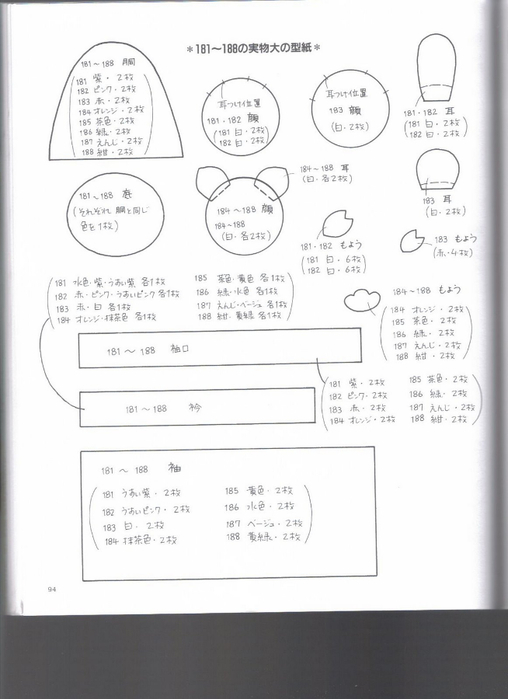 ＊181～188の実物大の型紙＊
181～188 胴
181 紫・2枚
182 ピンク・2枚
183 赤・2枚
184 オレンジ・2枚
185 茶色・2枚
186 緑・2枚
187 えんじ・2枚
188 紺・2枚
耳つけ位置
181・182 顔
181 白・2枚
182 白・2枚
耳つけ位置
183 顔
(白・2枚)
181・182 耳
181 白・2枚
182 白・2枚
181～188 底
(それぞれ 胴と同じ
色を1枚)
184～188 顔
184～188
(白・各2枚)
184～188 耳
(白・各2枚)
183 耳
(白・2枚)
181・182 もよう
181 白・6枚
182 白・6枚
183 もよう
(赤・4枚)
184～188 もよう
184 オレンジ・2枚
185 茶色・2枚
186 緑・2枚
187 えんじ・2枚
188 紺・2枚
181 水色・紫・うすい紫 各1枚
182 赤・ピンク・うすいピンク 各1枚
183 赤・白 各1枚
184 オレンジ・抹茶色 各1枚
185 茶色・黄色 各1枚
186 緑・水色 各1枚
187 えんじ・ベージュ 各1枚
188 紺・黄緑 各1枚
181～188 袖口
181～188 衿
181 紫・2枚
182 ピンク・2枚
183 赤・2枚
184 オレンジ・2枚
185 茶色・2枚
186 緑・2枚
187 えんじ・2枚
188 紺・2枚
181～188 袖
181 うすい紫・2枚
182 うすいピンク・2枚
183 白・2枚
184 抹茶色・2枚
185 黄色・2枚
186 水色・2枚
187 ベージュ・2枚
188 黄緑・2枚
94